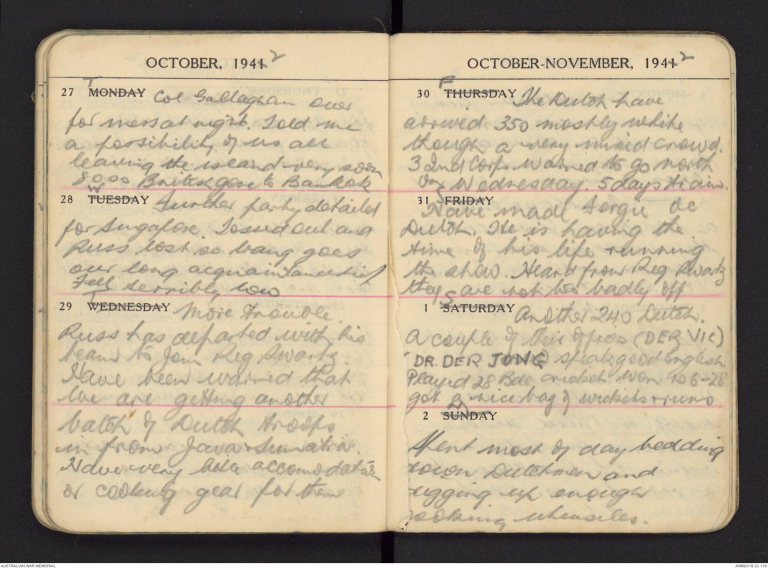 OCTOBER, 1942
27 T MONDAY Col Gallaghan over
for mess at night. Told me
a possibility of us all
leaving the island very soon
8000 British gone to Bankok
28 W TUESDAY Further party detailed
for Singapore. Tossed out and
Russ lost so bang goes
our long acquaintanceship
Fell terribly low
29 T WEDNESDAY More Trouble
Russ has departed with his
team to join Reg Swartz.
Have been warned that
we are getting another
batch of Dutch troops
in from Java & Sumatra.
Have very little accomodation
or cooking gear for them
OCTOBER-NOVEMBER, 1942
30 F THURSDAY The Dutch have
arrived 350 mostly white
though a very mixed crowd.
3 2nd Corps warned to go north
on Wednesday. 5 days train.
31 S FRIDAY
Have made Fergie OC
Dutch. He is having the
time of his life running
the show. Heard from Reg Swartz
they are not too badly off
1 S SATURDAY Another 240 Dutch.
A couple of their officers (DER VIC)
DR. DER JONG speaks good English.
Played 28 Bde cricket won 406-28
got a nice bag of wickets & runs
2 M SUNDAY
Spent most of day bedding
down Dutchmen and
rigging up enough
cooking utensiles.
AUSTRALIAN WAR MEMORIAL